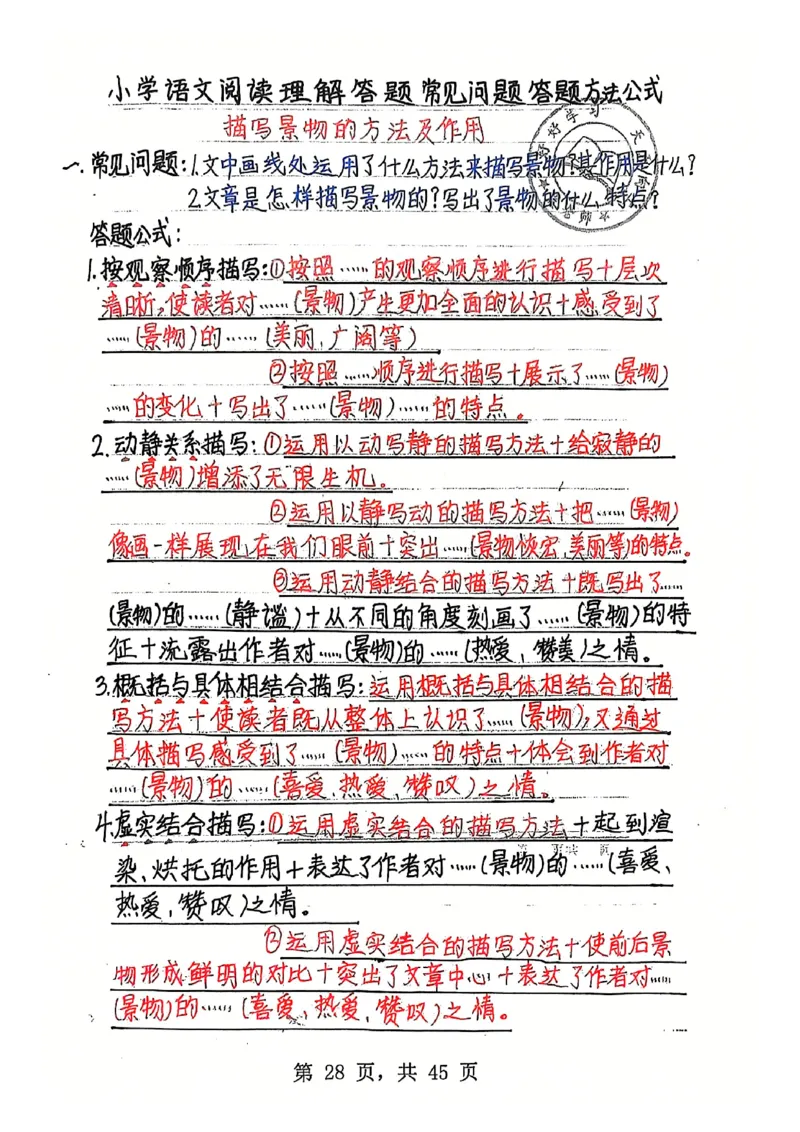 小学语文阅读理解答题常见问题答题方法公式
描写景物的方法及作用
一.常见问题:1.文中画线处运用了什么方法来描写景物?其作用是什么?
2.文章是怎样描写景物的?写出了景物的什么特点?
答题公式:
1.按观察顺序描写:①按照……的观察顺序进行描写+层次
清晰,使读者对……(景物)产生更加全面的认识+感受到了
……(景物)的……(美丽,广阔等)
②按照……顺序进行描写+展示了……(景物)
……的变化+写出了……(景物)……的特点。
2.动静关系描写:①运用以动写静的描写方法+给寂静的
……(景物)增添了无限生机。
②运用以静写动的描写方法+把……(景物)
像画一样展现在我们眼前+突出……(景物恢宏,美丽等)的特点。
③运用动静结合的描写方法+既写出了……
(景物)的……(静谧)+从不同的角度刻画了……(景物)的特
征+流露出作者对……(景物)的……(热爱,赞美)之情。
3.概括与具体相结合描写:运用概括与具体相结合的描
写方法+使读者既从整体上认识了……(景物),又通过
具体描写感受到了……(景物)……的特点+体会到作者对
……(景物)的……(喜爱、热爱、赞叹)之情。
4.虚实结合描写:①运用虚实结合的描写方法+起到渲
染、烘托的作用+表达了作者对……(景物)的……(喜爱、
热爱,赞叹)之情。
②运用虚实结合的描写方法+使前后景
物形成鲜明的对比+突出了文章中心+表达了作者对……
(景物)的……(喜爱、热爱、赞叹)之情。
第 28 页,共 45 页